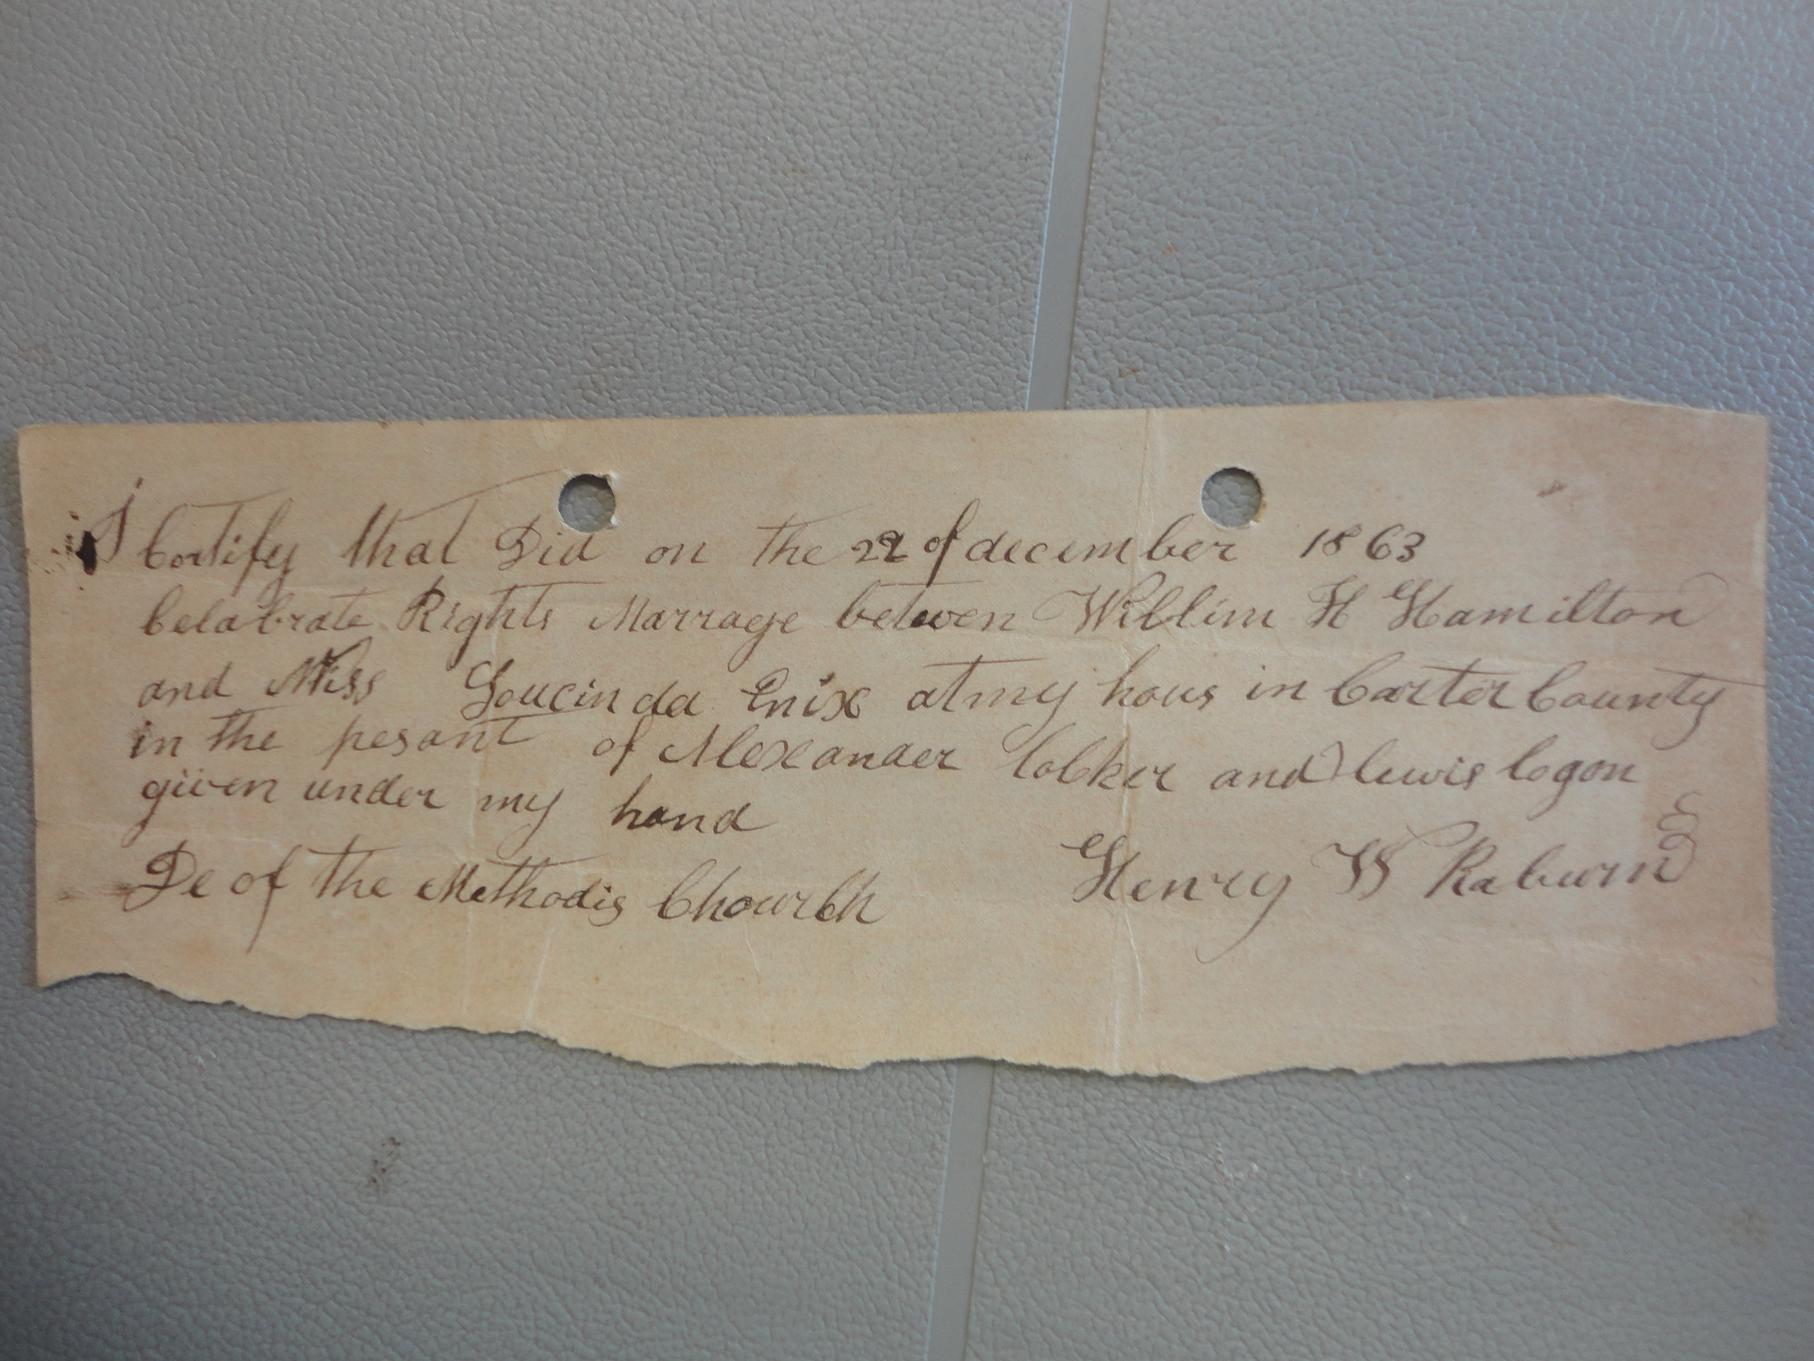 I Certify that Did on the 22 of december 1863
Celabrate Rights Marrage betwen Willim H Hamilton
and Miss Loucinda Enix at my hous in Carter County
in the pesant of Alexander Colker and lewis logon
given under my hand
De of the Methodis Chourch Henry W Raburn